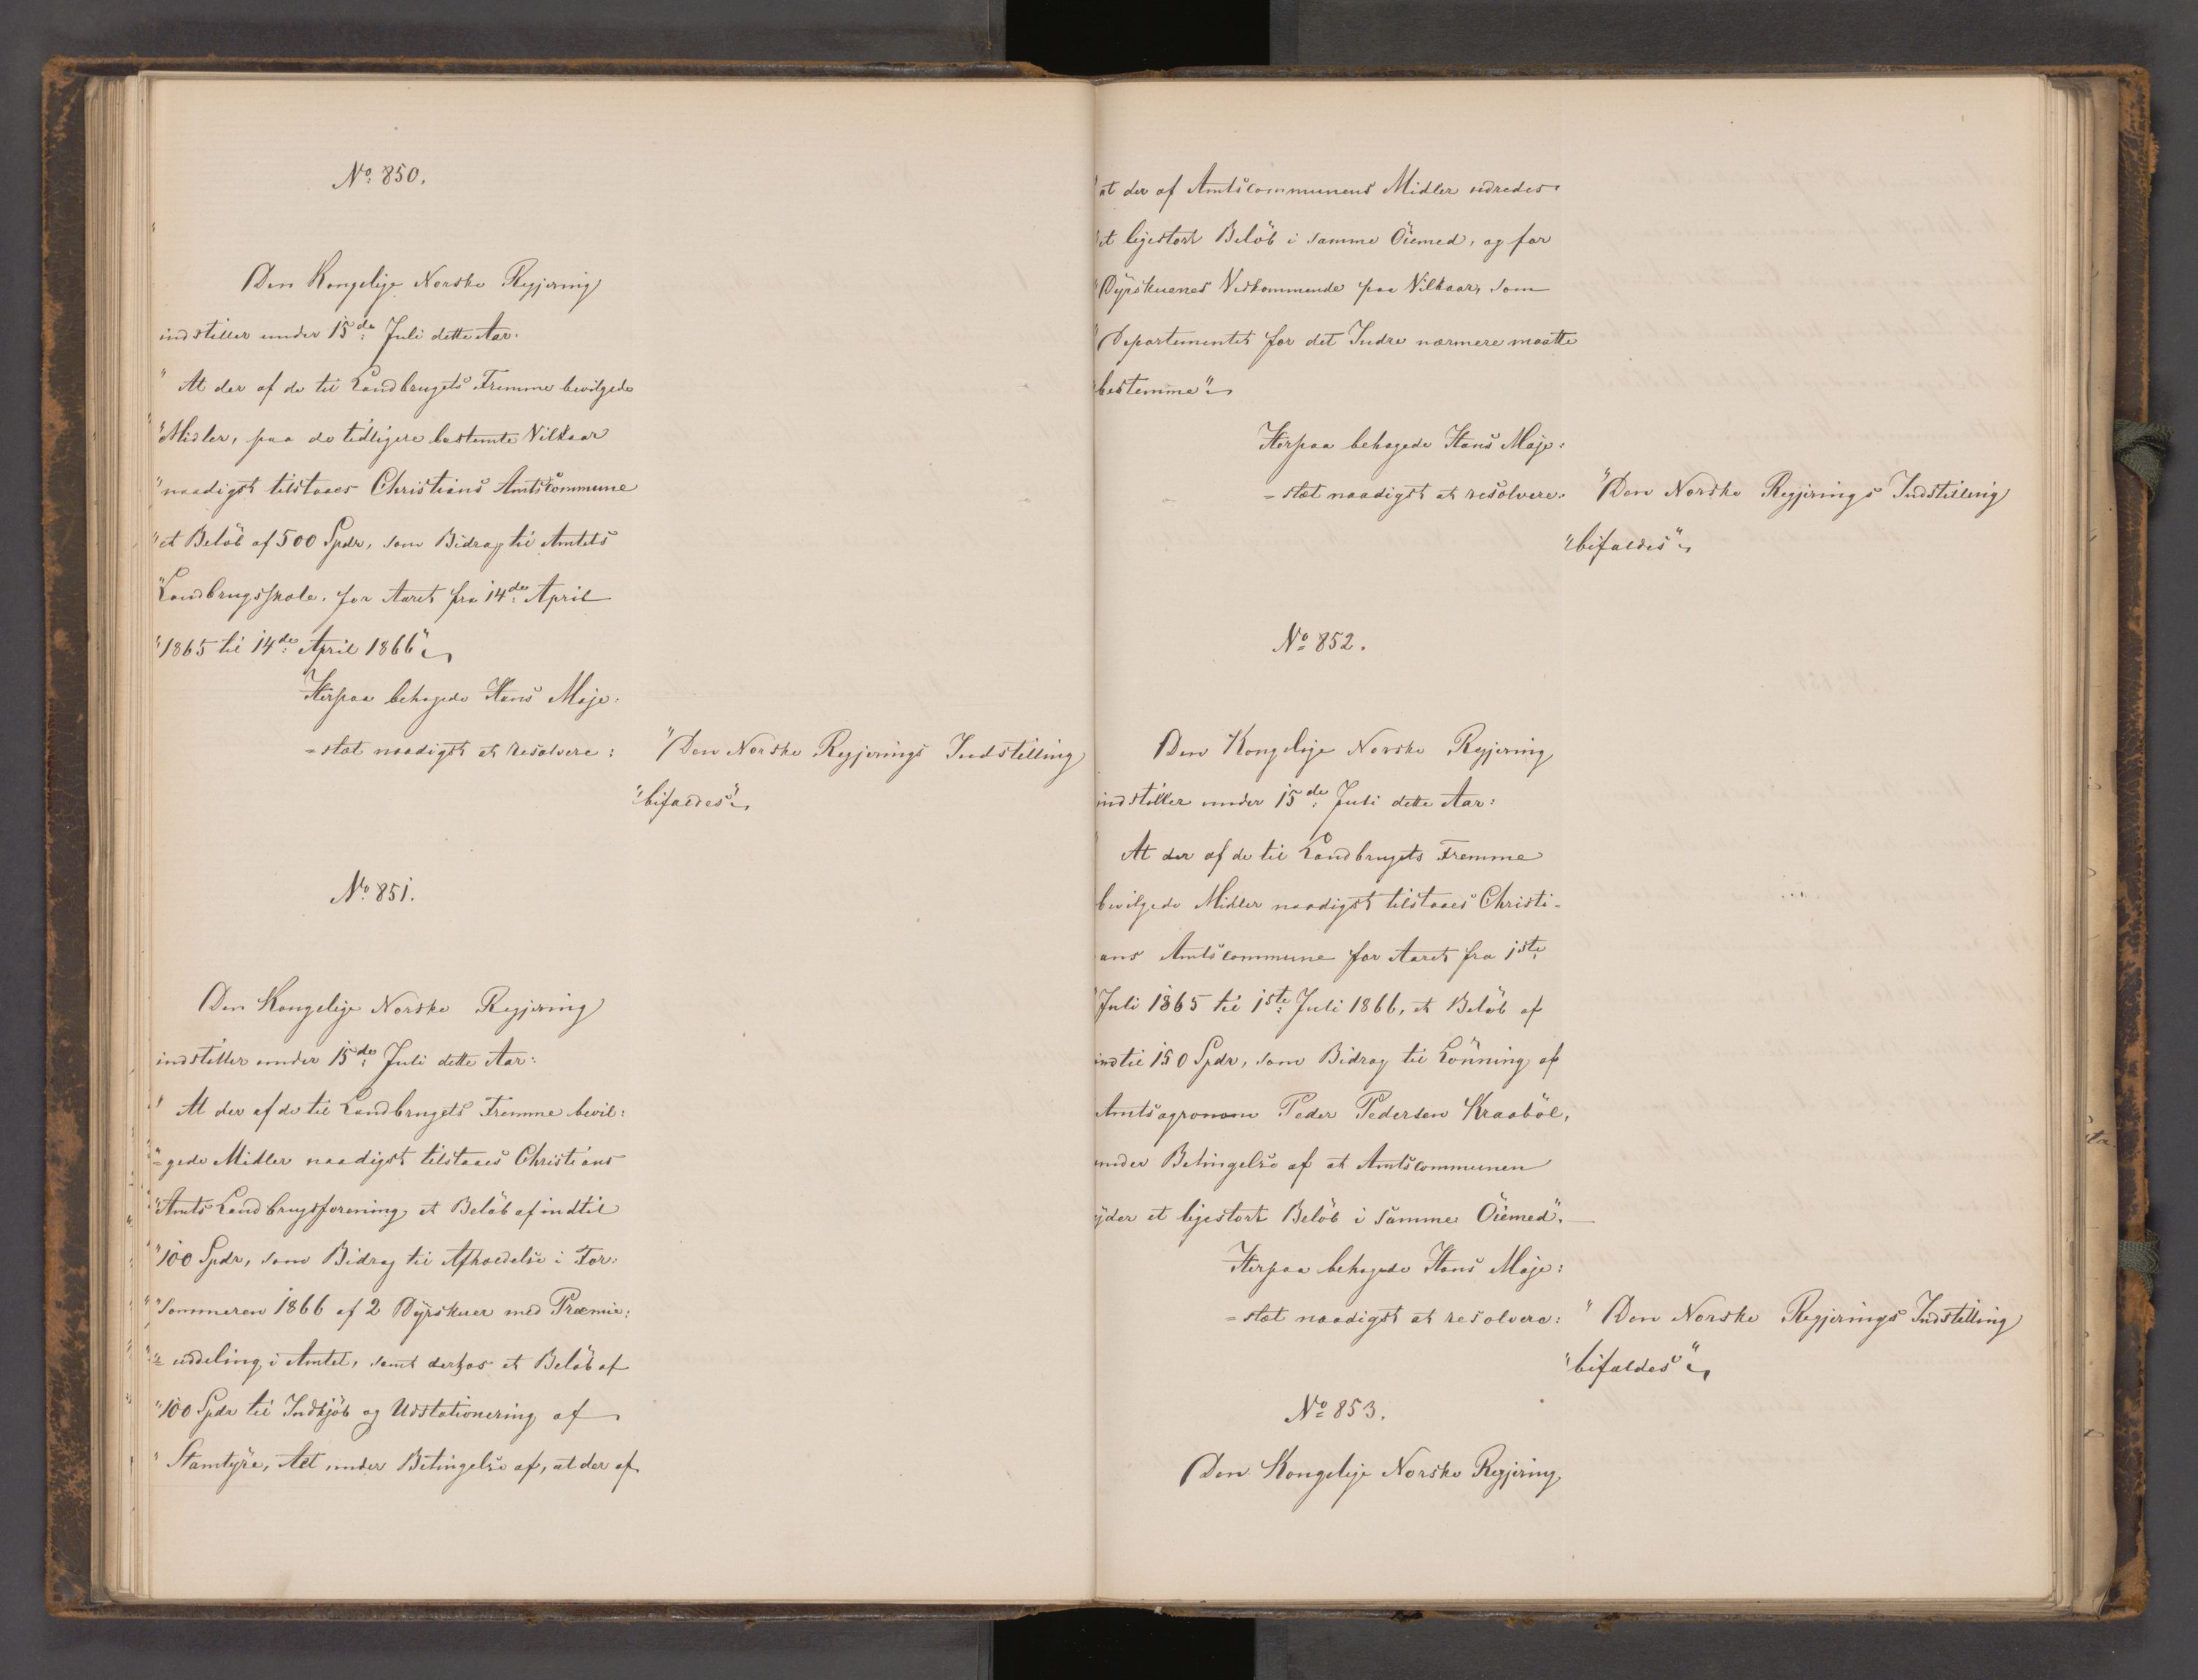 No: 850.
Den Kongelige Norske Regjering
indstiller under 15de: Juli dette Aar:
" At der af de til Landbrugets Fremme bevilgede
"Midler, paa de tidligere bestemte Vilkaar
"naadigst tilstaaes Christians Amtscommune
"et Beløb af 500 Spdr, som Bidrag til Amtets
"Landbrugsskole, for Aaret fra 14de: April
"1865 til 14de: April 1866".
Herpaa behagede Hans Maje:
=stæt naadigst at resolvere: "Den Norske Regjerings Indstilling
"bifaldes".
No: 851.
Den Kongelige Norske Regjering
indstiller under 15de: Juli dette Aar:
" At der af de til Landbrugets Fremme bevil:
"=gede Midler naadigst tilstaaes Christians
"Amts Landbrugsforening et Beløb af indtil
"100 Spdr, som Bidrag til Afholdelse i For:
"Sommeren 1866 af 2 Dÿrskuer med Præmie:
"=uddeling i Amtet, samt derhos et Beløb af
"100 Spdr til Indkjøb og Udstationering af
" Stamtÿre, Alt under Betingelse af, at der af
"at der af Amtscommunens Midler udredes
"et ligestort Beløb i samme Öiemed, og for
"Dÿrskuenes Vedkommende paa Vilkaar, som
"Departementet for det Indre nærmere maatte
"bestemme".
Herpaa behagede Hans Maje:
=stæt naadigst at resolvere: "Den Norske Regjerings Indstilling
"bifaldes".
No= 852.
Den Kongelige Norske Regjering
indstiller under 15de: Juli dette Aar:
" At der af de til Landbrugets Fremme
bevilgede Midler naadigst tilstaaes Christi=
ans Amtscommune for Aaret fra 1ste
"Juli 1865 til 1ste: Juli 1866, et Beløb af
indtil 150 Spdr, som Bidrag til Lönning af
Amtsagronom Peder Pedersen Kraaböl,
under Betingelse af at Amtscommunen
ÿder et ligestort Beløb i samme Öiemed".
Herpaa behagede Hans Maje:
=stæt naadigst at resolvere: " Den Norske Regjerings Indstilling
"bifaldes".
No= 853.
Den Kongelige Norske Regjering